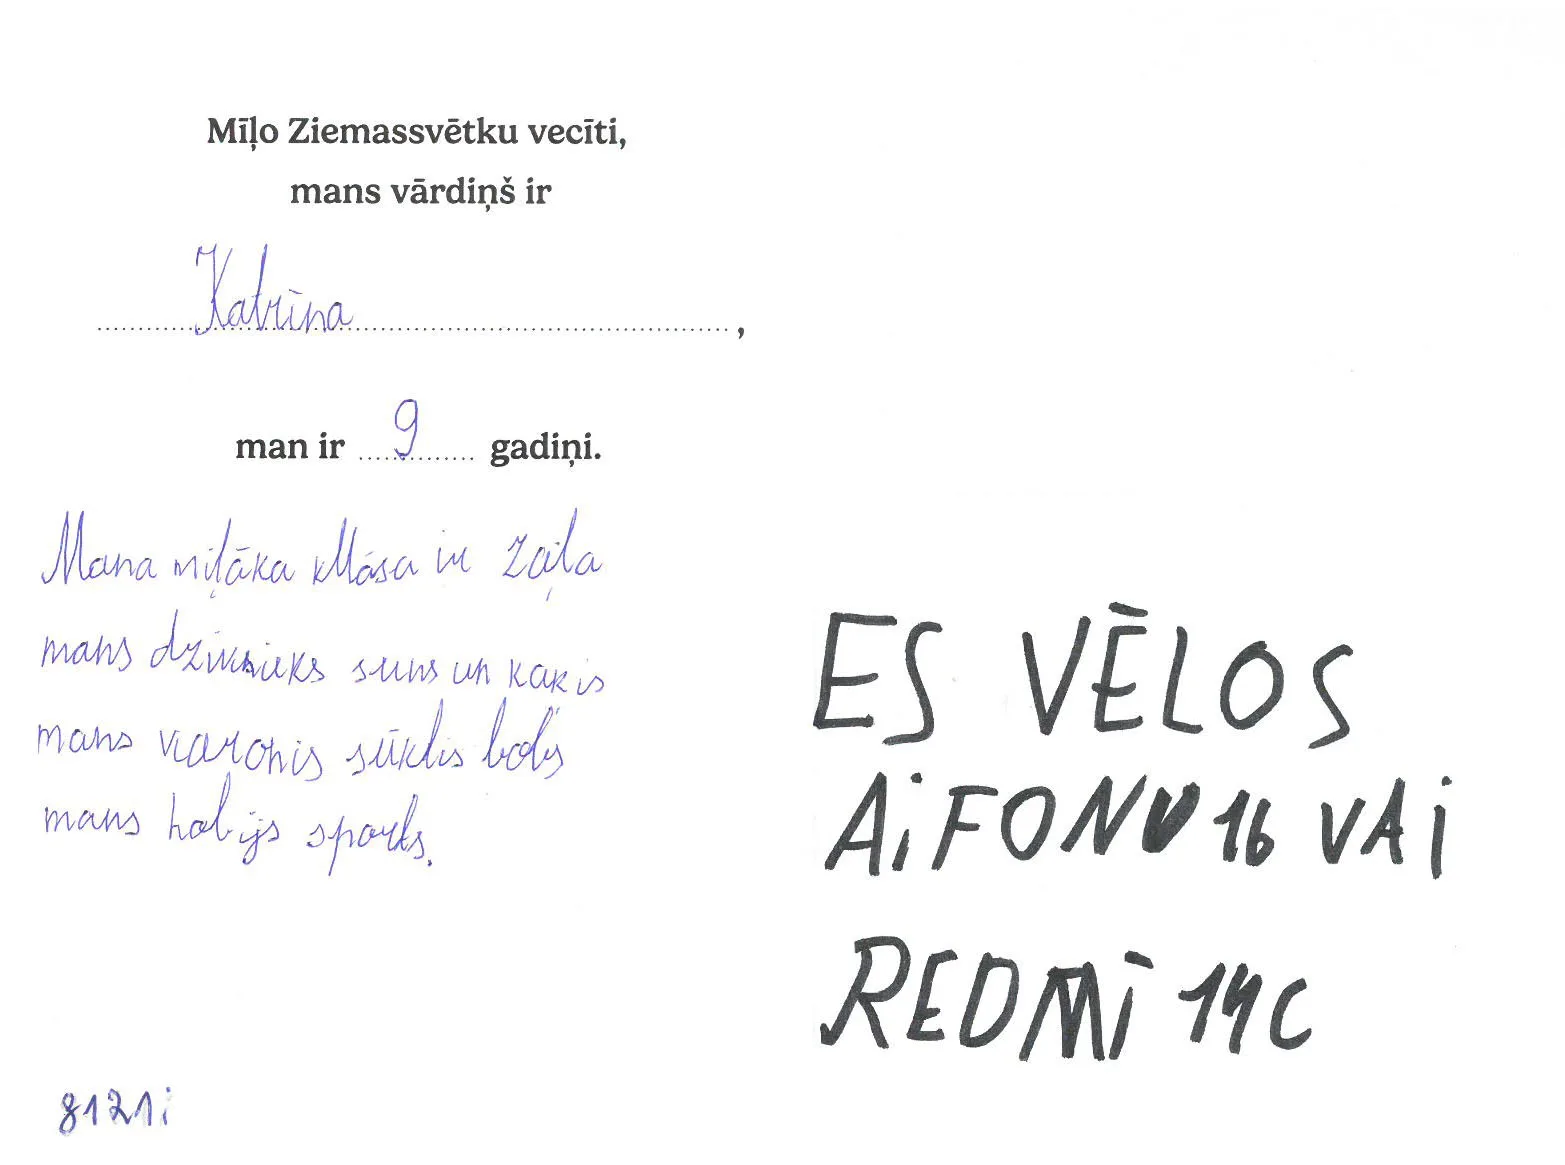 Mīļo Ziemassvētku vecīti,
mans vārdiņš ir
Katrīna,
man ir 9 gadiņi.
Mana miļāka klāsa ir zaļa
mans dzivnieks suns un kakis
mans varonis sūklis bobs
mans hobijs sports.
8121i
ES VĒLOS
AiFONU 16 VAi
REDMĪ 14C